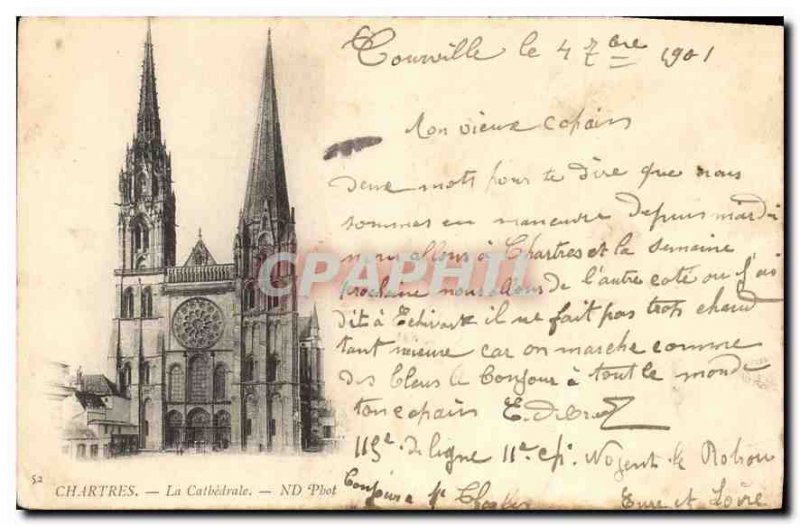 Tourville le 4 7bre 1901
Mon vieux copain
Deux mots pour te dire que nous
sommes en maneuvre depuis mardi
nous allons à Chartres et la semaine
prochaine nous allons de l'autre coté ou j'ai
dit à il ne fait pas trop chaud
tant mieux car on marche comme
des bleus le bonjour à tout le monde
ton copain E.
115e de ligne 11e cie Nogent le Rotrou
Eure et Loire
52
CHARTRES. — La Cathédrale. — ND Phot
CPAPHIL